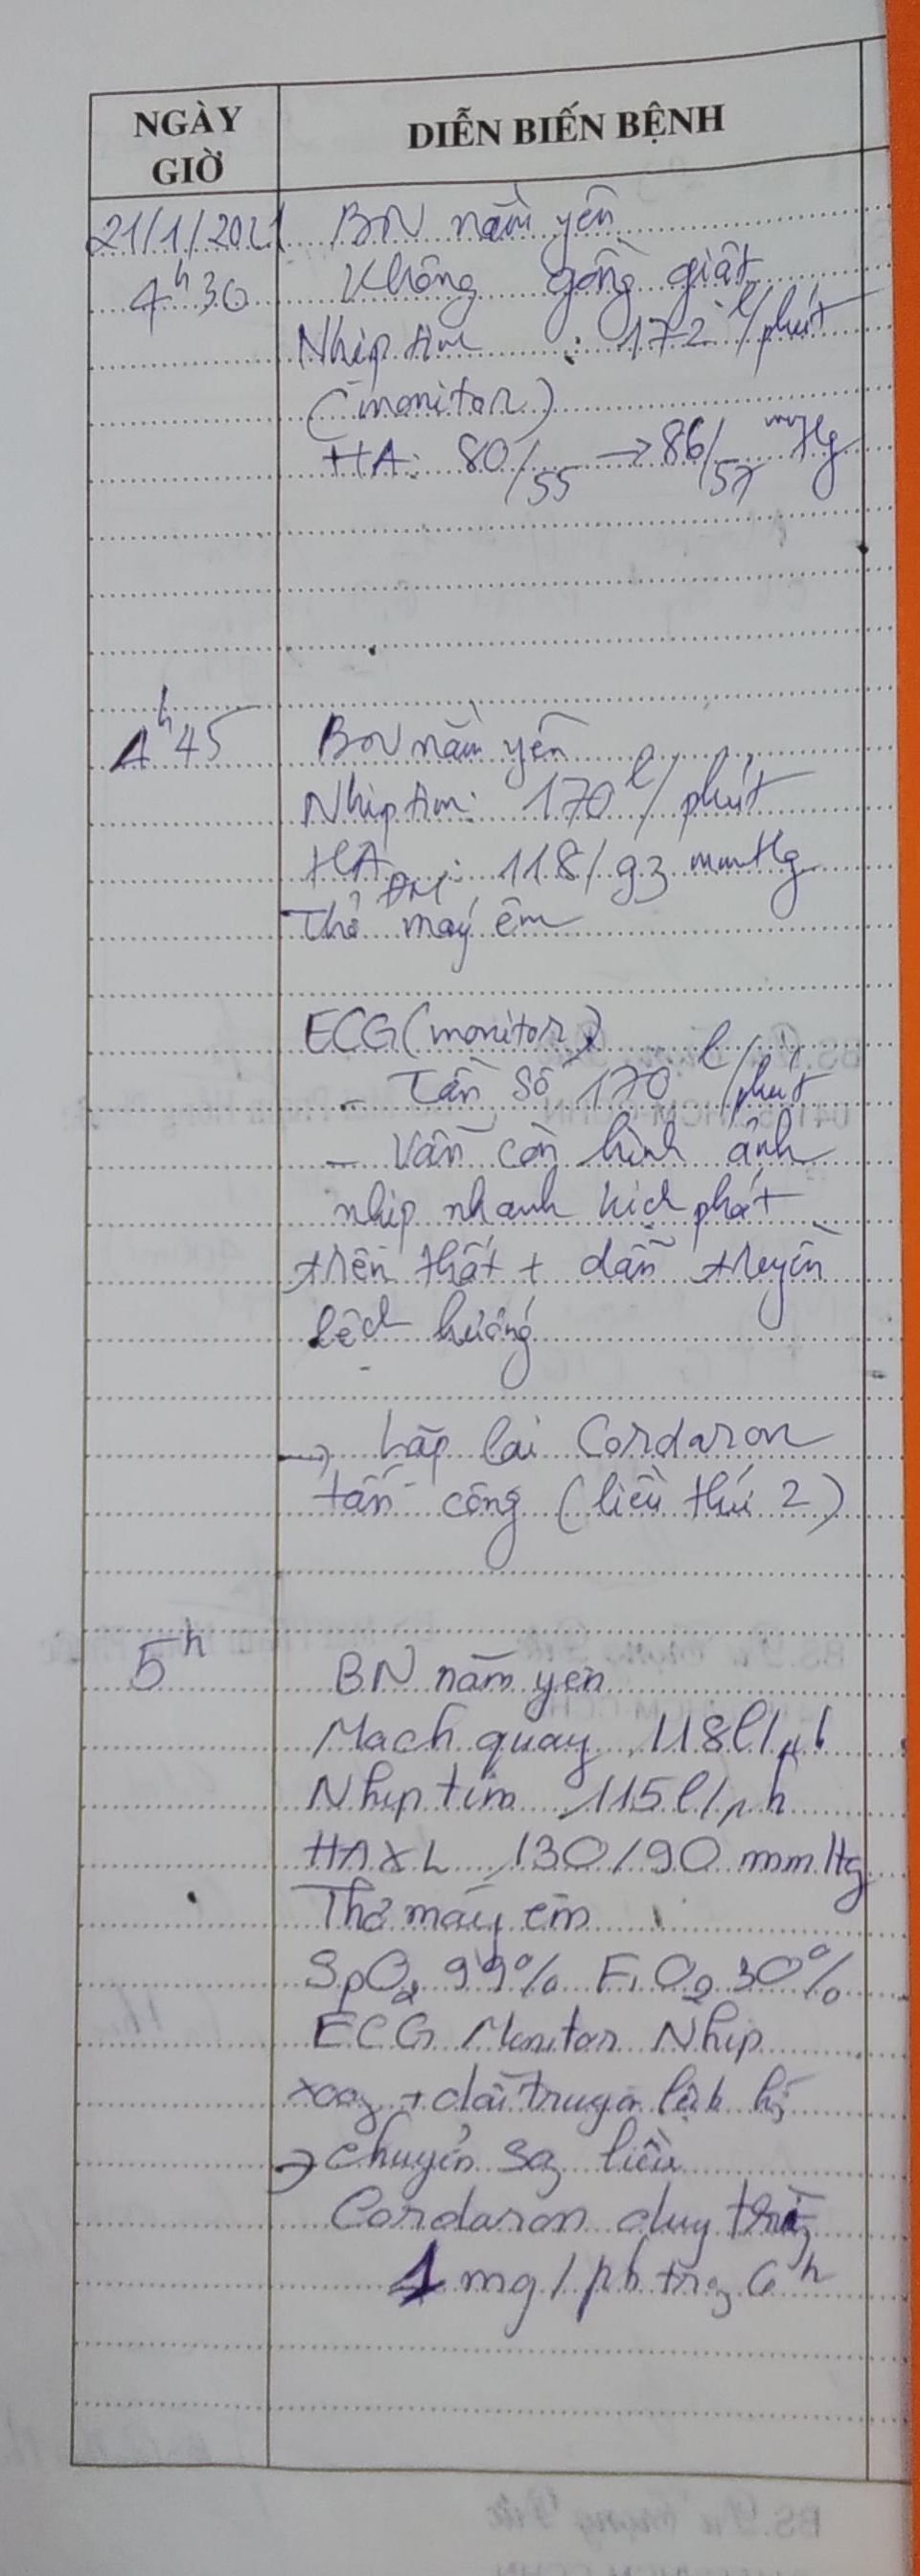 NGÀY
GIỜ
DIỄN BIẾN BỆNH
21/1/2021 BN nằm yên
4h30 Không gồng giật
Nhịp tim : 172 l/phút
(monitor)
HA: 80/55 → 86/57 mmHg
4h45 BN nằm yên
Nhịp tim: 170 l/phút
HA ĐM: 118/93 mmHg
Thở máy êm
ECG (monitor)
- Tần số 170 l/phút
- Vẫn còn hình ảnh
nhịp nhanh kịch phát
trên thất + dẫn truyền
lệch hướng
→ Lặp lại Cordaron
tấn công (liều thứ 2)
5h BN nằm yên
Mạch quay 118 l/ph
Nhịp tim 115 l/ph
HAXL 130/90 mmHg
Thở máy êm
SpO2 99% FiO2 30%
ECG Monitor Nhịp
xoang + dẫn truyền lệch hg
→ chuyển sag liều
Cordaron duy trì
1 mg/ph trg 6h